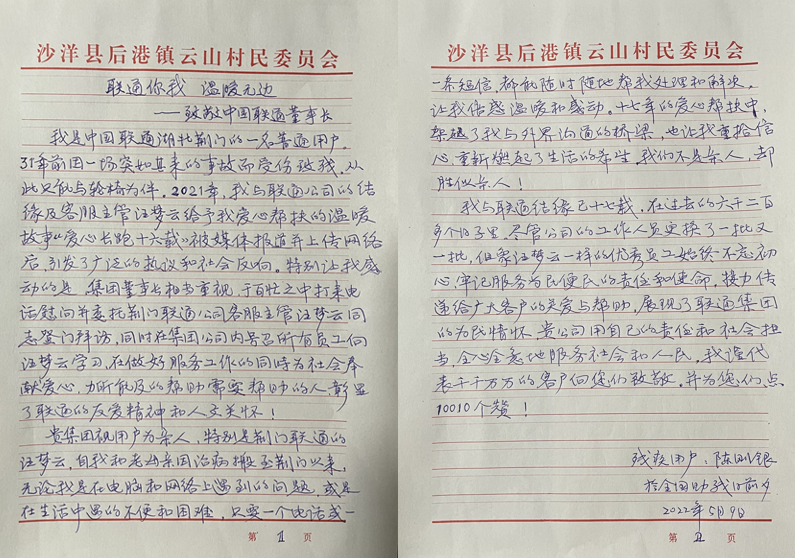 沙洋县后港镇云山村民委员会
联通你我 温暖无边
——致敬中国联通董事长
我是中国联通湖北荆门的一名普通用户,
31年前因一场突如其来的事故而受伤致残,从
此只能与轮椅为伴。2021年,我与联通公司的结
缘及客服主管汪梦云给予我爱心帮扶的温暖
故事“爱心长跑十六载”被媒体报道并上传网络
后,引发了广泛的热议和社会反响。特别让我感
动的是,集团董事长相当重视,于百忙之中打来电
话慰问并委托荆门联通公司客服主管汪梦云同
志登门拜访,同时在集团公司内号召所有员工向
汪梦云学习,在做好服务工作的同时为社会奉
献爱心,力所能及的帮助需要帮助的人,彰显
了联通的友爱精神和人文关怀!
贵集团视用户为亲人,特别是荆门联通的
汪梦云,自我和老母亲因治病搬至荆门以来,
无论我是在电脑和网络上遇到的问题,或是
在生活中遇的不便和困难,只要一个电话或一
第 1 页
沙洋县后港镇云山村民委员会
一条短信,都能随时随地帮我处理和解决,
让我倍感温暖和感动。十七年的爱心帮扶中,
架起了我与外界沟通的桥梁,也让我重拾信
心,重新燃起了生活的希望,我们不是亲人,却
胜似亲人!
我与联通结缘已十七载,在过去的六千二百
多个日子里,尽管公司的工作人员更换了一批又
一批,但象汪梦云一样的优秀员工始终不忘初
心,牢记服务为民便民的责任和使命,接力传
递给广大客户的关爱与帮助,展现了联通集团
的为民情怀。贵公司用自己的责任和社会担
当,全心全意地服务社会和人民,我谨代
表千千万万的客户向您们致敬,并为您们点
10010个赞!
残疾用户:陈刚银
于全国助残日前夕
2022年5月9日
第 2 页